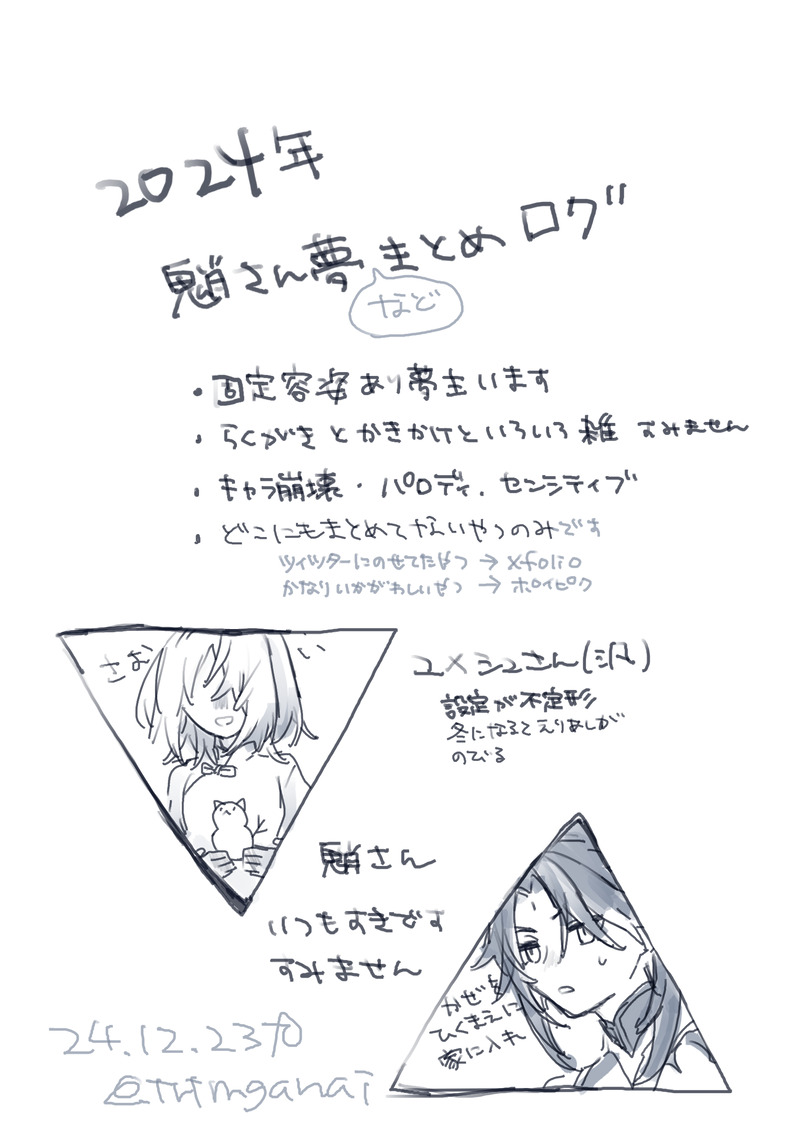 2024年
魈さん夢まとめログ
など
・固定容姿あり夢主います
・らくがきとかきかけといろいろ雑 すみません
・キャラ崩壊・パロディ・センシティブ
・どこにもまとめてないやつのみです
ツイッターにのせてたやつ → Xfolio
かなりいかがわしいやつ → ポイピク
さむい
ユメシュさん(汎)
設定が不定形
冬になるとえりあしが
のびる
魈さん
いつもすきです
すみません
かぜを
ひくまえに
家に入れ
24.12.23